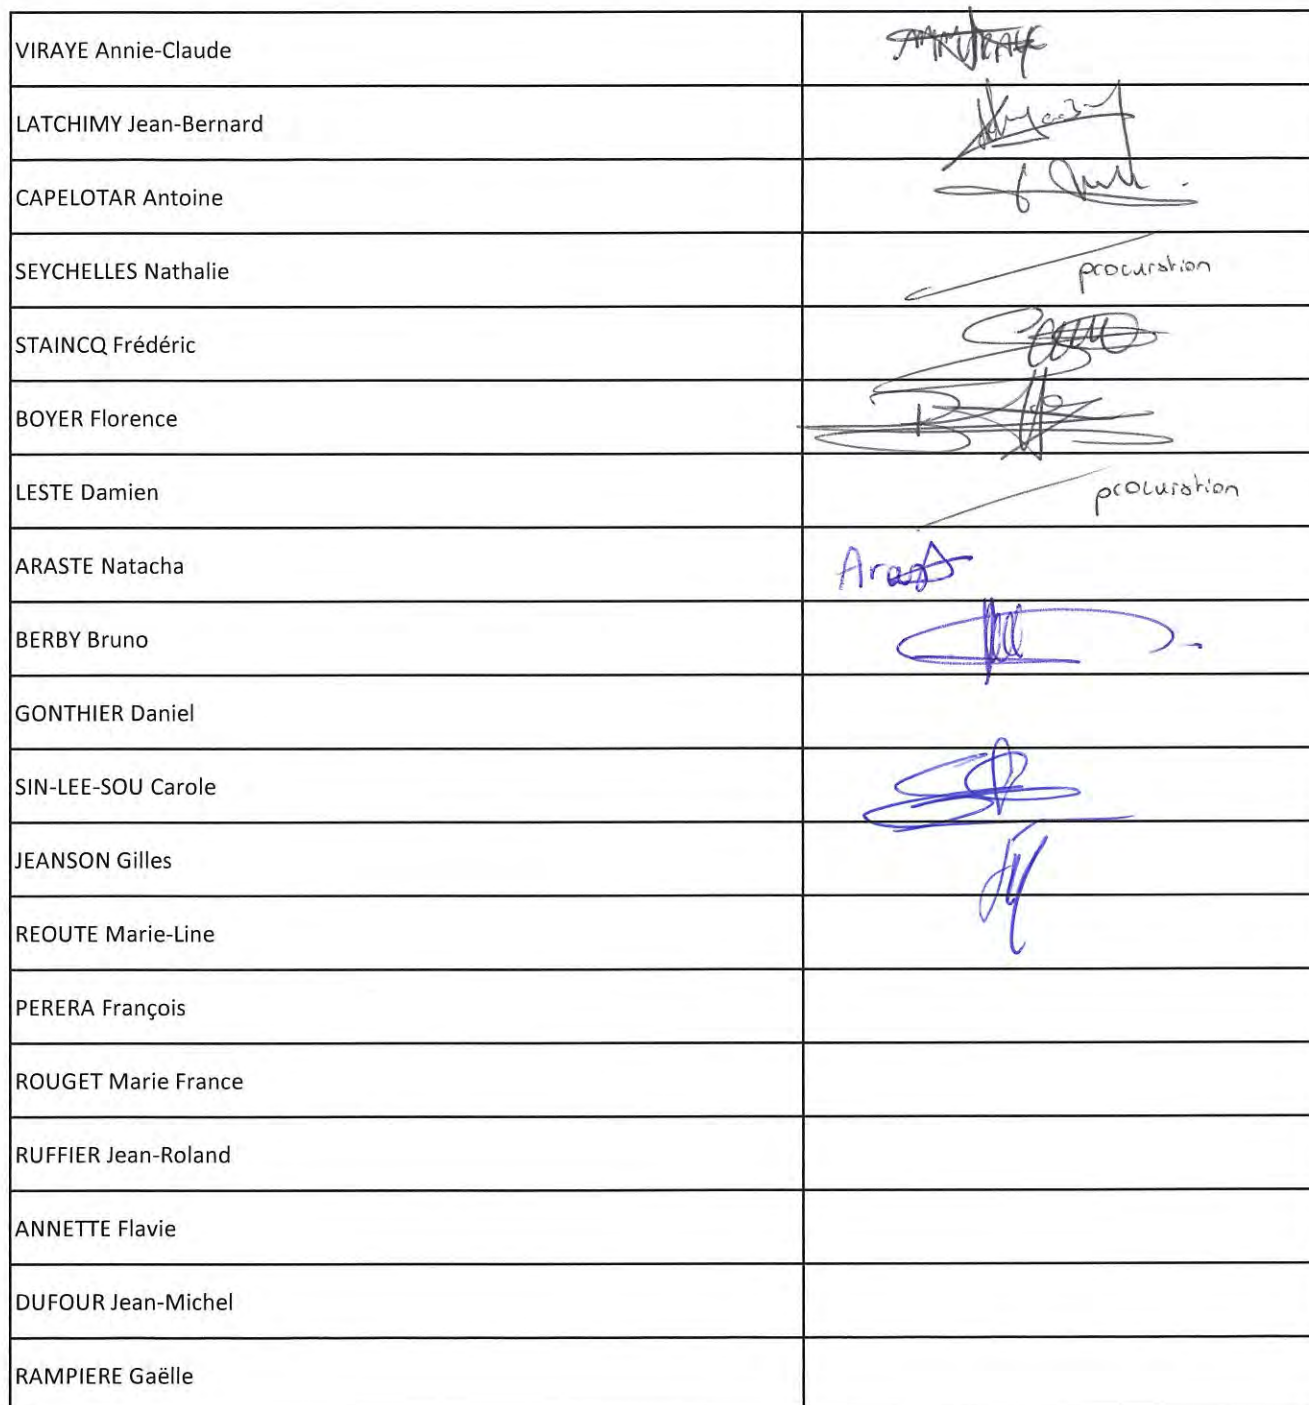 VIRAYE Annie-Claude
LATCHIMY Jean-Bernard
CAPELOTAR Antoine
SEYCHELLES Nathalie procuration
STAINCQ Frédéric
BOYER Florence
LESTE Damien procuration
ARASTE Natacha
BERBY Bruno
GONTHIER Daniel
SIN-LEE-SOU Carole
JEANSON Gilles
REOUTE Marie-Line
PERERA François
ROUGET Marie France
RUFFIER Jean-Roland
ANNETTE Flavie
DUFOUR Jean-Michel
RAMPIERE Gaëlle